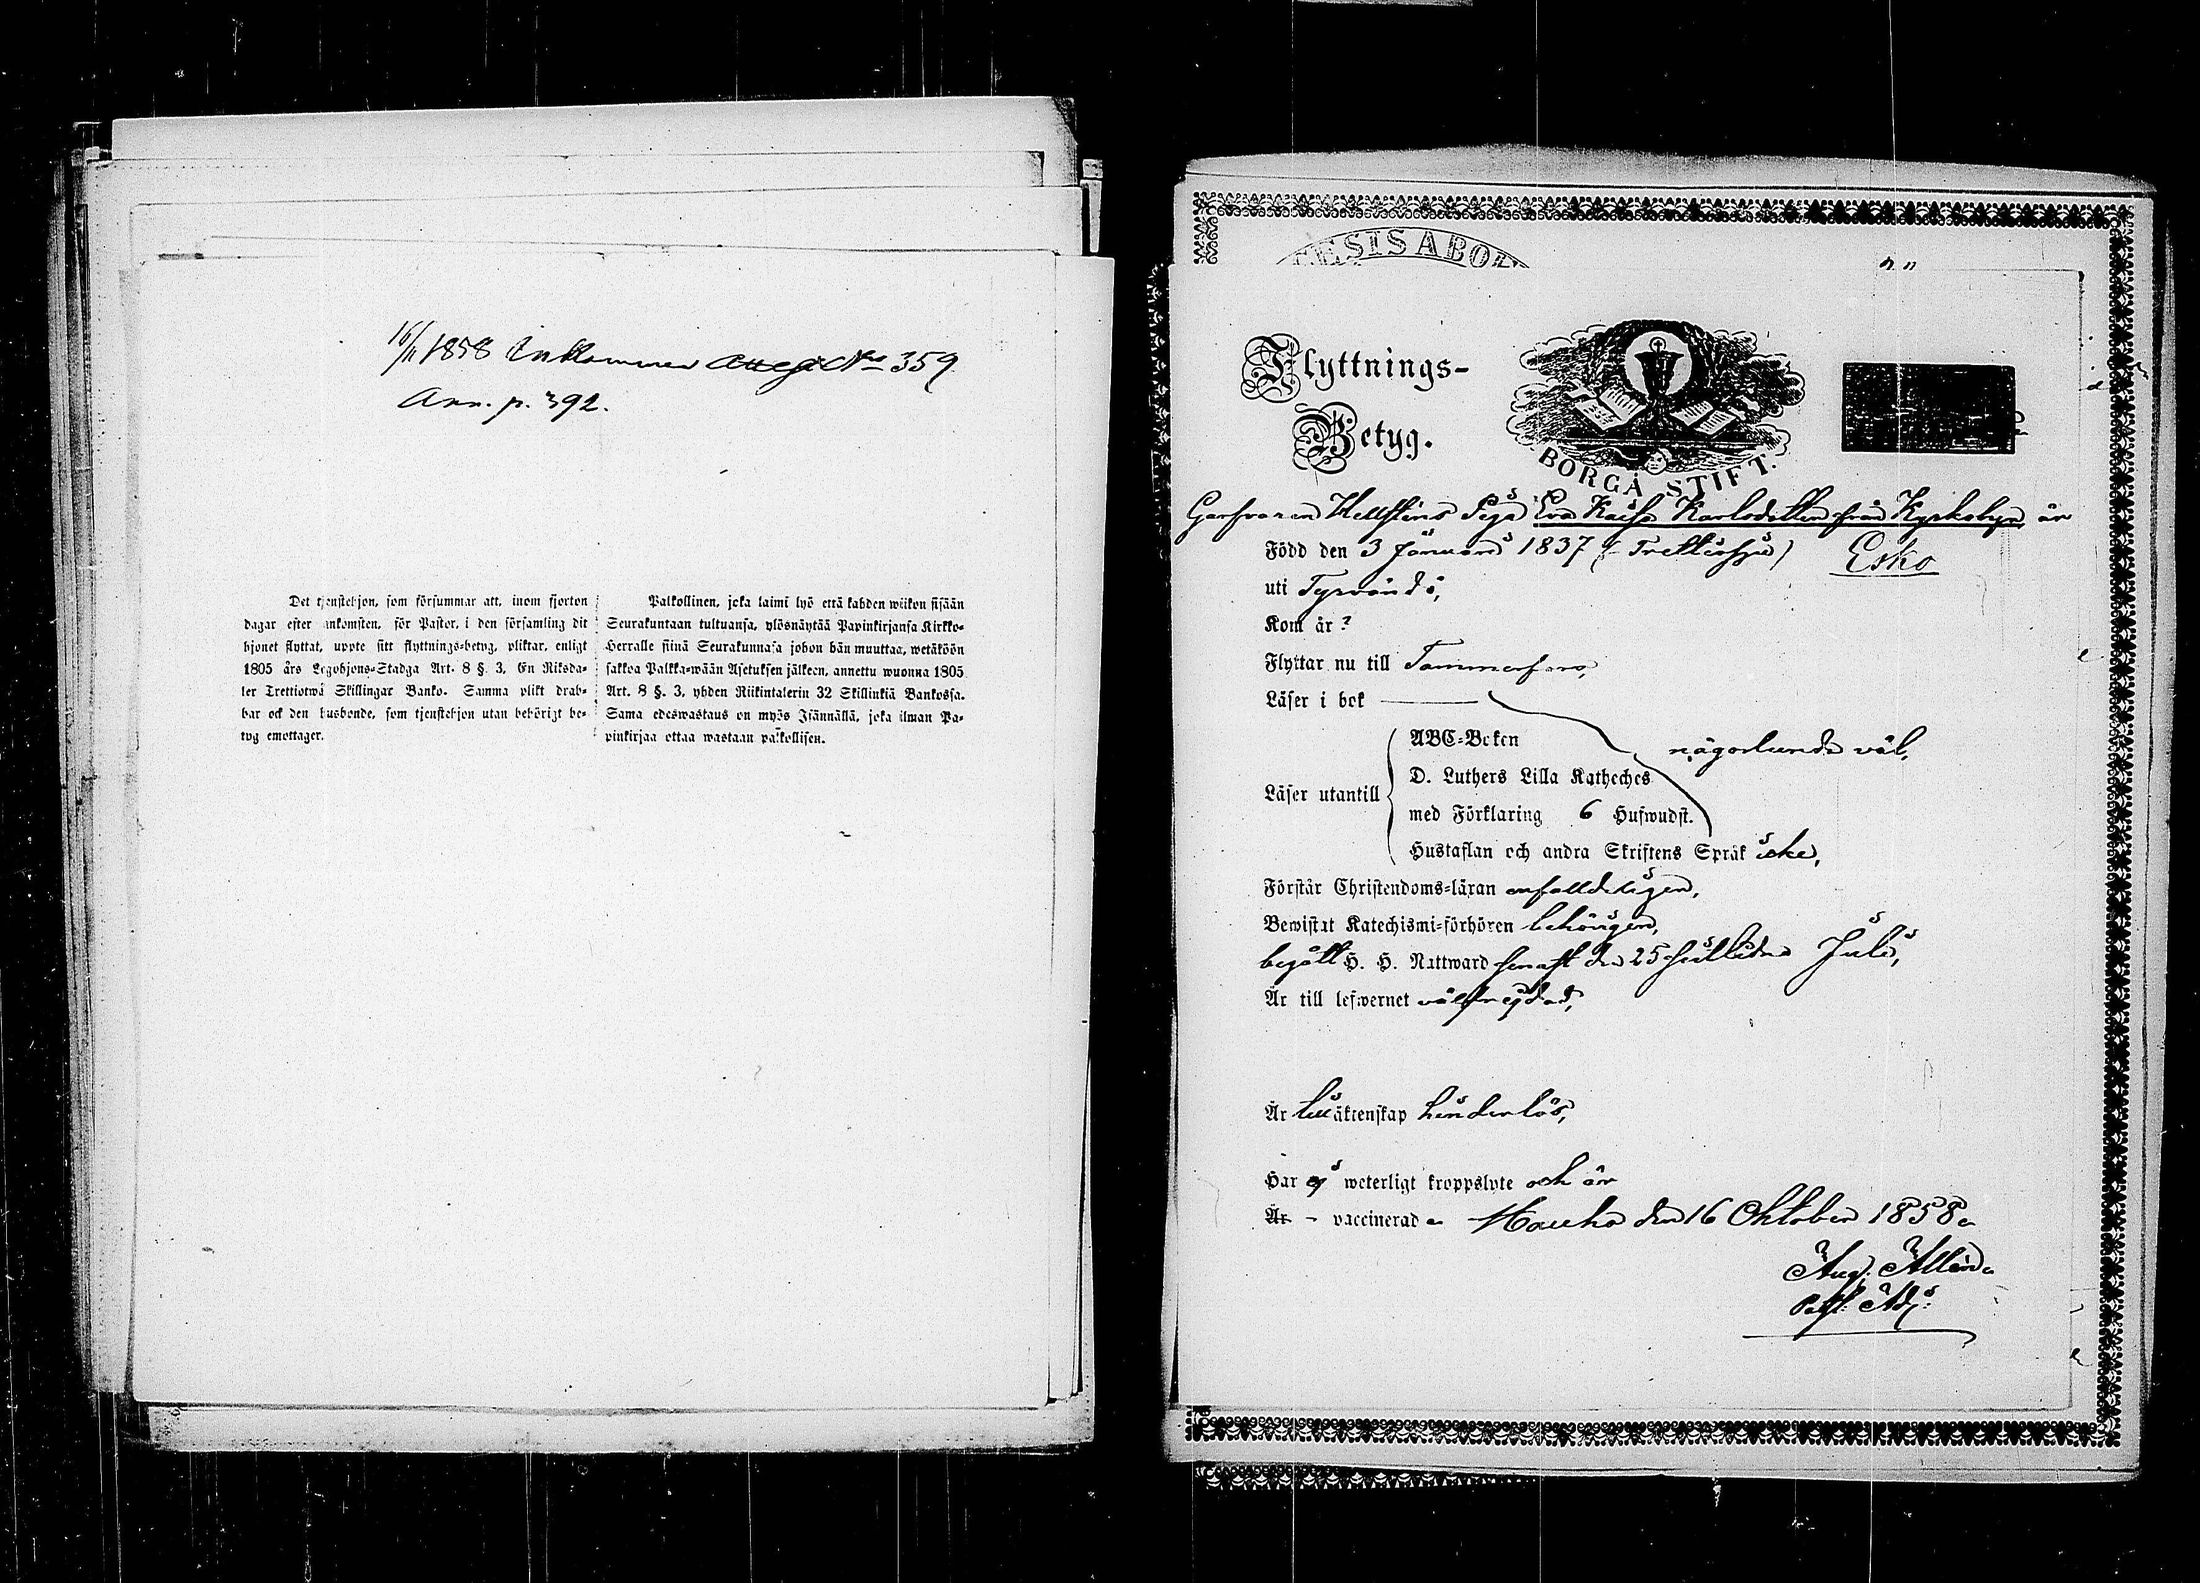 16/11 1858 Inkommen attest No 359.
Ann. p. 392.
Det tjenstehjon, som försummar att, inom fjorton
dagar efter ankomsten, för Pastor, i den församling dit
hjonet flyttat, uppte sitt flyttnings-betyg, pliktar, enligt
1805 års Legohjons-Stadga Art. 8 §. 3, En Riksda-
ler Trettiotwå Skillingar Banko. Samma plikt drab-
bar ock den husbonde, som tjenstehjon utan behörigt be-
tyg emottager.
Palkollinen, joka laimi lyö että kahden wiikon sisään
Seurakuntaan tultuansa, ylösnäytää Papinkirjansa Kirkko-
Herralle siinä Seurakunnasa johon hän muuttaa, wetäköön
sakkoa Palkka-wään Asetuksen jälkeen, annettu wuonna 1805
Art. 8 §. 3, yhden Riikintalerin 32 Skillinkiä Bankossa.
Sama edeswastaus on myös Isännällä, joka ilman Pa-
pinkirjaa ottaa wastaan palkollisen.
ESIS ABO
Flyttnings-
Betyg.
BORGÅ STIFT.
Garfvaren Hellstens Piga Eva Kaisa Karlsdotter från Kyrkobyn, är
Född den 3 Januari 1837 (Trettiosju) Esko
uti Tyrvändö,
Kom år ?
Flyttar nu till Tammerfors,
Läser i bok
ABC-Boken
någorlunda väl,
D. Luthers Lilla Katheches
Läser utantill
med Förklaring 6 Hufwudst.
Hustaflan och andra Skriftens Språk icke,
Förstår Christendoms-läran enfalldeligen,
Bewistat Katechismi-förhören behörigen,
begått H. H. Nattward senast den 25 sistlidne Juli,
Är till lefwernet välfrejdad,
Är till äktenskap hinderlös,
Har ej weterligt kroppslyte och är
Är - vaccinerad. Hauho den 16 Oktober 1858.
Aug. Allén.
Past. Adj: